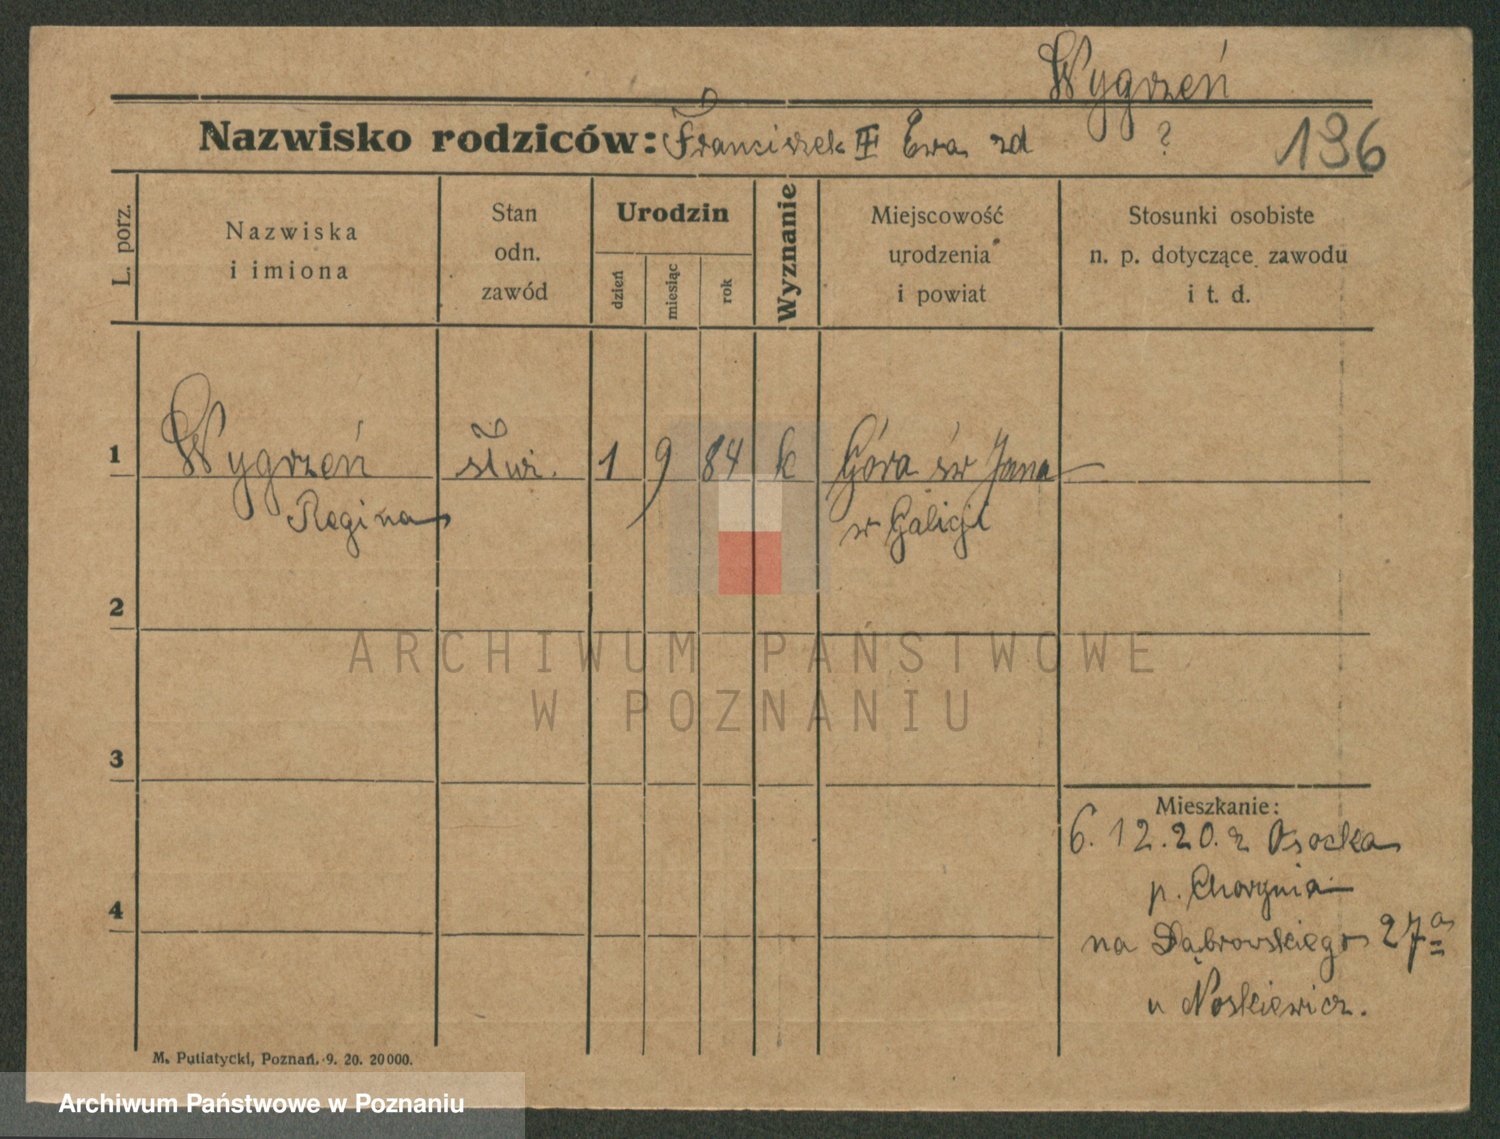 Wygrzeń
Nazwisko rodziców: Franciszek Ewa zd ? 136
L. porz.
Nazwiska
i imiona
Stan
odn.
zawód
Urodzin
dzień
miesiąc
rok
Wyznanie
Miejscowość
urodzenia
i powiat
Stosunki osobiste
n. p. dotyczące zawodu
i t. d.
1 Wygrzeń 1 9 84 k Góra św Jana
Regina w Galicji
2
3
4
Mieszkanie:
6. 12. 20. z
p. Chorynia
na Dąbrowskiego 27a
u Noskiewicz.
M. Putiatycki, Poznań. 9. 20. 20000.
ARCHIWUM PAŃSTWOWE
W POZNANIU
Archiwum Państwowe w Poznaniu